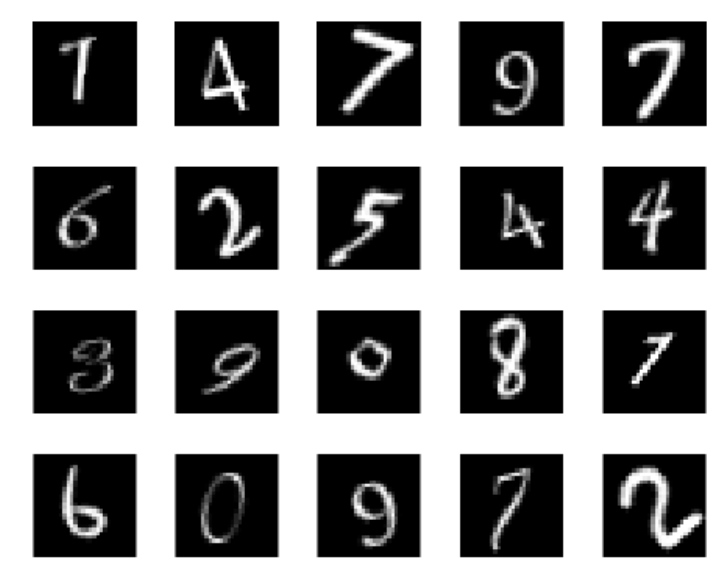 7 4 7 9 7
6 2 5 4 4
3 9 0 8 7
6 0 9 7 2